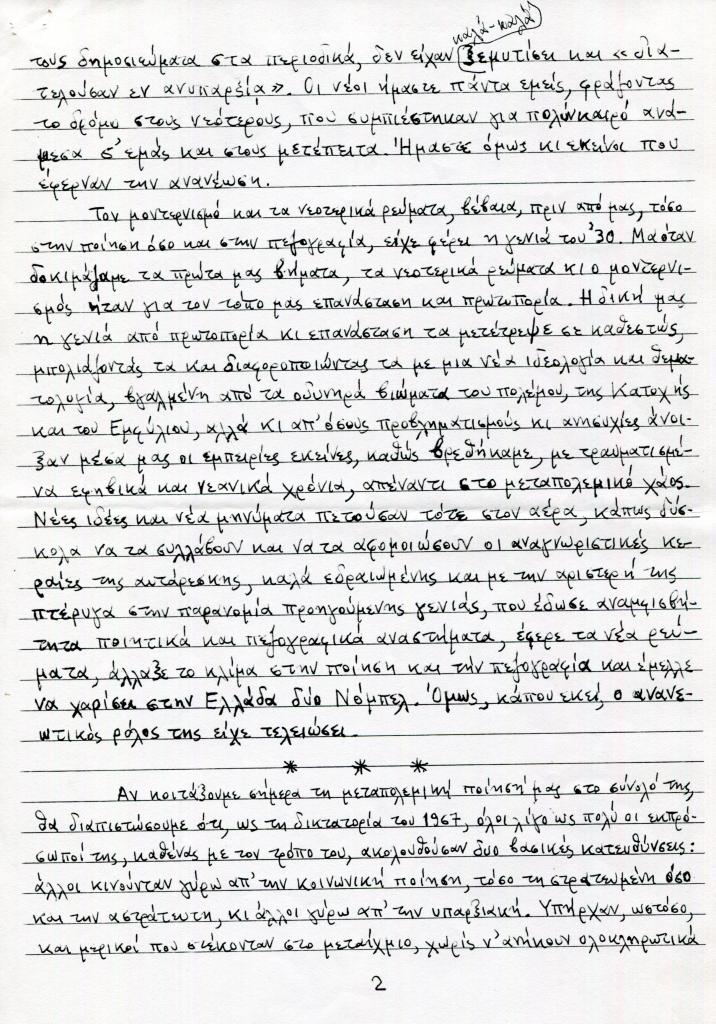 καλά-καλά
τους δημοσιεύματα στα περιοδικά, δεν είχαν ξεμυτίσει και «δια-
τελούσαν εν ανυπαρξία». Οι νέοι ήμαστε πάντα εμείς, φράζοντας
το δρόμο στους νεότερους, που συμπιέστηκαν για πολύν καιρό ανά-
μεσα σ' εμάς και στους μετέπειτα. Ήμαστε όμως κι εκείνοι που
έφερναν την ανανέωση.
Τον μοντερνισμό και τα νεοτερικά ρεύματα, βέβαια, πριν από μας, τόσο
στην ποίηση όσο και στην πεζογραφία, είχε φέρει η γενιά του '30. Μα όταν
δοκιμάζαμε τα πρώτα μας βήματα, τα νεοτερικά ρεύματα κι ο μοντερνι-
σμός ήταν για τον τόπο μας επανάσταση και πρωτοπορία. Η δική μας
η γενιά από πρωτοπορία κι επανάσταση τα μετέτρεψε σε καθεστώς,
μπολιάζοντάς τα και διαφοροποιώντας τα με μια νέα ιδεολογία και θεμα-
τολογία, βγαλμένη από τα οδυνηρά βιώματα του πολέμου, της Κατοχής
και του Εμφύλιου, αλλά κι απ' όσους προβληματισμούς κι ανησυχίες άνοι-
ξαν μέσα μας οι εμπειρίες εκείνες, καθώς βρεθήκαμε, με τραυματισμέ-
να εφηβικά και νεανικά χρόνια, απέναντι στο μεταπολεμικό χάος.
Νέες ιδέες και νέα μηνύματα πετούσαν τότε στον αέρα, κάπως δύσ-
κολα να τα συλλάβουν και να τα αφομοιώσουν οι αναγνωριστικές κε-
ραίες της αυτάρεσκης, καλά εδραιωμένης και με την αριστερή της
πτέρυγα στην παρανομία προηγούμενης γενιάς, που έδωσε αναμφισβή-
τητα ποιητικά και πεζογραφικά αναστήματα, έφερε τα νέα ρεύ-
ματα, άλλαξε το κλίμα στην ποίηση και την πεζογραφία και έμελλε
να χαρίσει στην Ελλάδα δύο Νόμπελ. Όμως, κάπου εκεί, ο ανανε-
ωτικός ρόλος της είχε τελειώσει.
* * *
Αν κοιτάξουμε σήμερα τη μεταπολεμική ποίησή μας στο σύνολό της,
θα διαπιστώσουμε ότι, ως τη δικτατορία του 1967, όλοι λίγο ως πολύ οι εκπρό-
σωποί της, καθένας με τον τρόπο του, ακολουθούσαν δυο βασικές κατευθύνσεις:
άλλοι κινούνταν γύρω απ' την κοινωνική ποίηση, τόσο τη στρατευμένη όσο
και την αστράτευτη, κι άλλοι γύρω απ' την υπαρξιακή. Υπήρχαν, ωστόσο,
και μερικοί που στέκονταν στο μεταίχμιο, χωρίς ν' ανήκουν ολοκληρωτικά
2